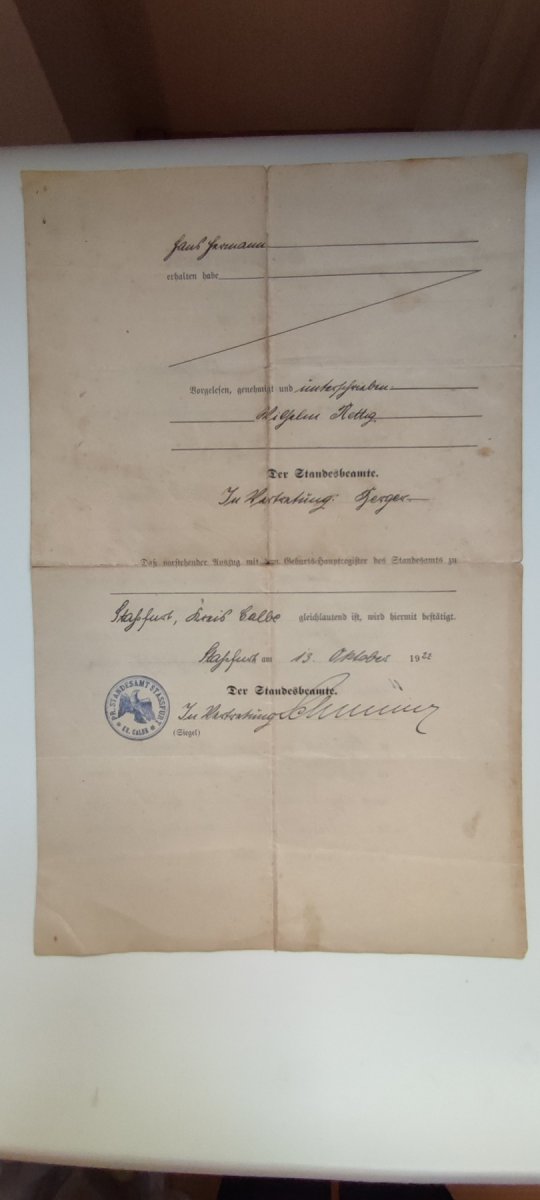 Hans Hermann
erhalten habe
Vorgelesen, genehmigt und unterschrieben
Wilhelm Rettig
Der Standesbeamte.
In Vertretung: Berger
Daß vorstehender Auszug mit dem Geburts-Hauptregister des Standesamts zu
Staßfurt, Kreis Calbe gleichlautend ist, wird hiermit bestätigt.
Staßfurt am 13. Oktober 1922
Der Standesbeamte.
In Vertretung
(Siegel)
PR. STANDESAMT STASSFURT
KR. CALBE